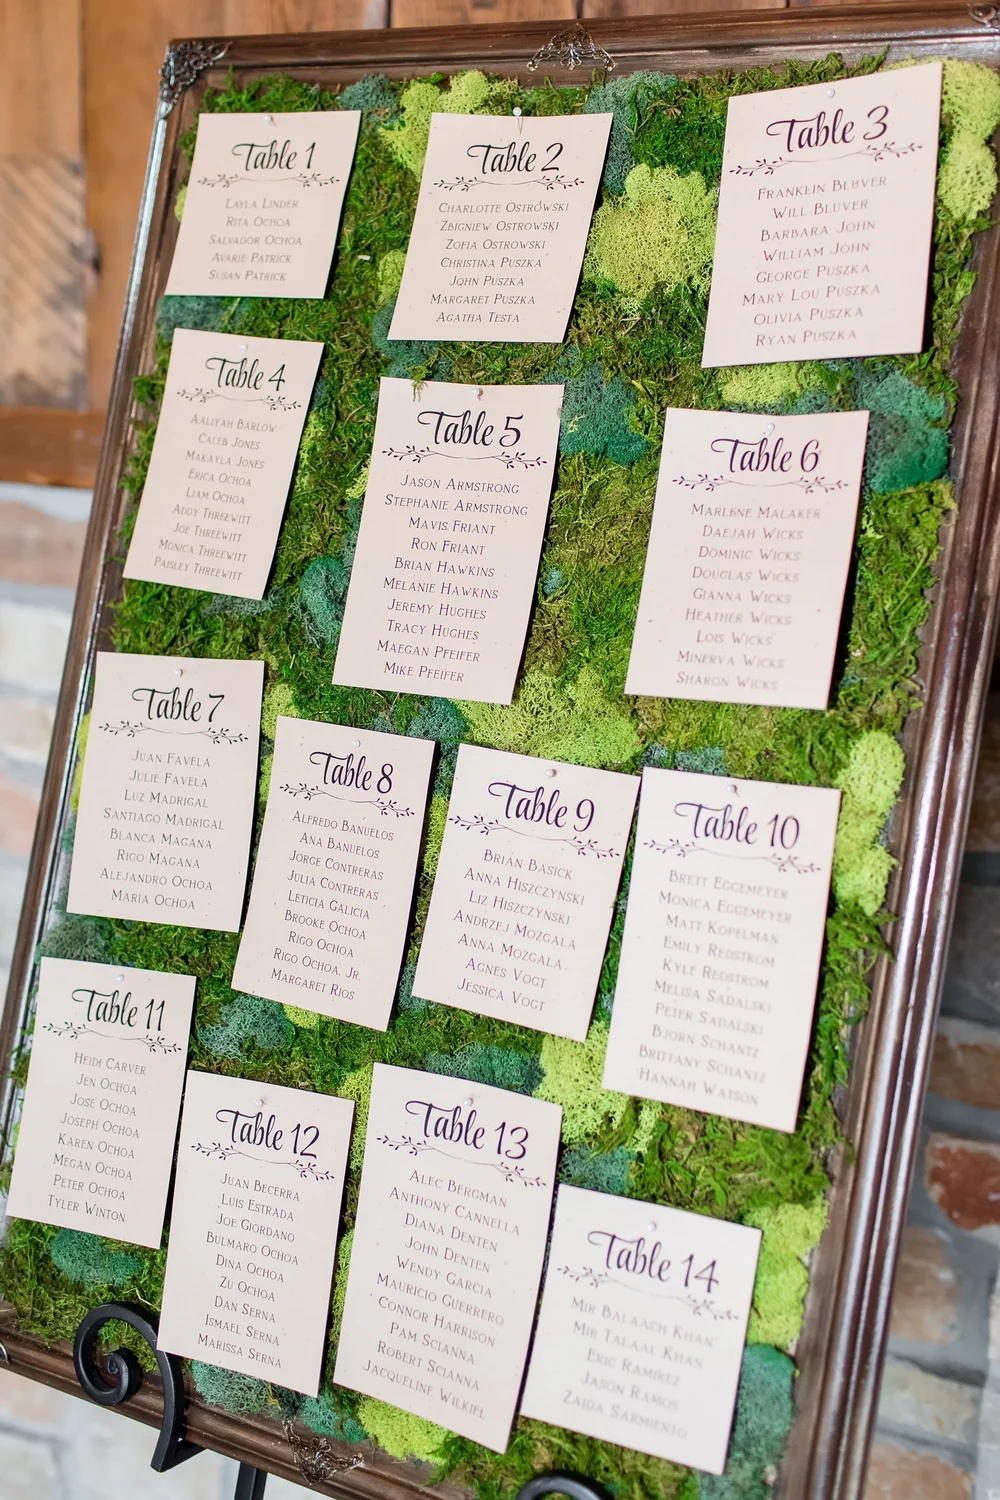 Table 1
Layla Linder
Rita Ochoa
Salvador Ochoa
Avarie Patrick
Susan Patrick
Table 2
Charlotte Ostrowski
Zbigniew Ostrowski
Zofia Ostrowski
Christina Puszka
John Puszka
Margaret Puszka
Agatha Testa
Table 3
Franklin Bluver
Will Bluver
Barbara John
William John
George Puszka
Mary Lou Puszka
Olivia Puszka
Ryan Puszka
Table 4
Aaliyah Barlow
Caleb Jones
Makayla Jones
Erica Ochoa
Liam Ochoa
Addy Threewitt
Joe Threewitt
Monica Threewitt
Paisley Threewitt
Table 5
Jason Armstrong
Stephanie Armstrong
Mavis Friant
Ron Friant
Brian Hawkins
Melanie Hawkins
Jeremy Hughes
Tracy Hughes
Maegan Pfeifer
Mike Pfeifer
Table 6
Marlene Malaker
Daejah Wicks
Dominic Wicks
Douglas Wicks
Gianna Wicks
Heather Wicks
Lois Wicks
Minerva Wicks
Sharon Wicks
Table 7
Juan Favela
Julie Favela
Luz Madrigal
Santiago Madrigal
Blanca Magana
Rigo Magana
Alejandro Ochoa
Maria Ochoa
Table 8
Alfredo Banuelos
Ana Banuelos
Jorge Contreras
Julia Contreras
Leticia Galicia
Brooke Ochoa
Rigo Ochoa
Rigo Ochoa, Jr.
Margaret Rios
Table 9
Brian Basick
Anna Hiszczynski
Liz Hiszczynski
Andrzej Mozgala
Anna Mozgala
Agnes Vogt
Jessica Vogt
Table 10
Brett Eggemeyer
Monica Eggemeyer
Matt Kopelman
Emily Redstrom
Kyle Redstrom
Melisa Sadalski
Peter Sadalski
Bjorn Schantz
Brittany Schantz
Hannah Watson
Table 11
Heidi Carver
Jen Ochoa
Jose Ochoa
Joseph Ochoa
Karen Ochoa
Megan Ochoa
Peter Ochoa
Tyler Winton
Table 12
Juan Becerra
Luis Estrada
Joe Giordano
Bulmaro Ochoa
Dina Ochoa
Zu Ochoa
Dan Serna
Ismael Serna
Marissa Serna
Table 13
Alec Bergman
Anthony Cannella
Diana Denten
John Denten
Wendy Garcia
Mauricio Guerrero
Connor Harrison
Pam Scianna
Robert Scianna
Jacqueline Wilkiel
Table 14
Mir Balaach Khan
Mir Talaal Khan
Eric Ramirez
Jason Ramos
Zaida Sarmiento